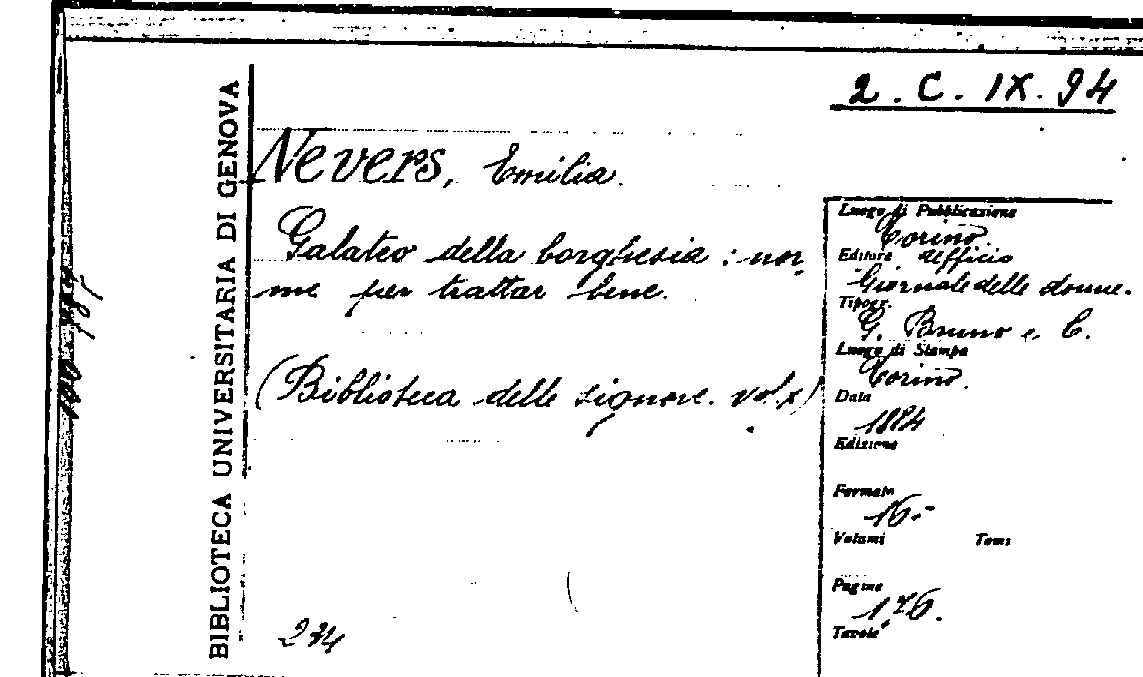 2. C. IX. 94
BIBLIOTECA UNIVERSITARIA DI GENOVA
Nevers, Emilia.
Galateo della borghesia : nor
me per trattar bene.
(Biblioteca delle signore. vol. x)
234
Luogo di Pubblicazione
Torino
Editore uffficio
Giornale delle donne.
Tipogr.
G. Bruno e C.
Luogo di Stampa
Torino.
Data
1884
Edizione
Formato
16.-
Volumi Tomi
Pagine
176.
Tavole